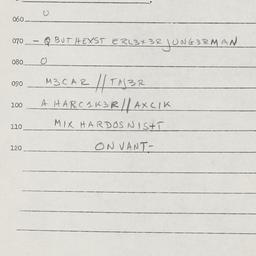 060
070 - Q BUTHEYST ERL3X3R JUNG3RMAN
080 O
090 M3CAR // TAJ3R
100 A HARC1K3R // AXCIK
110 MIX HARDOSNIS+T
120 ONVANT-